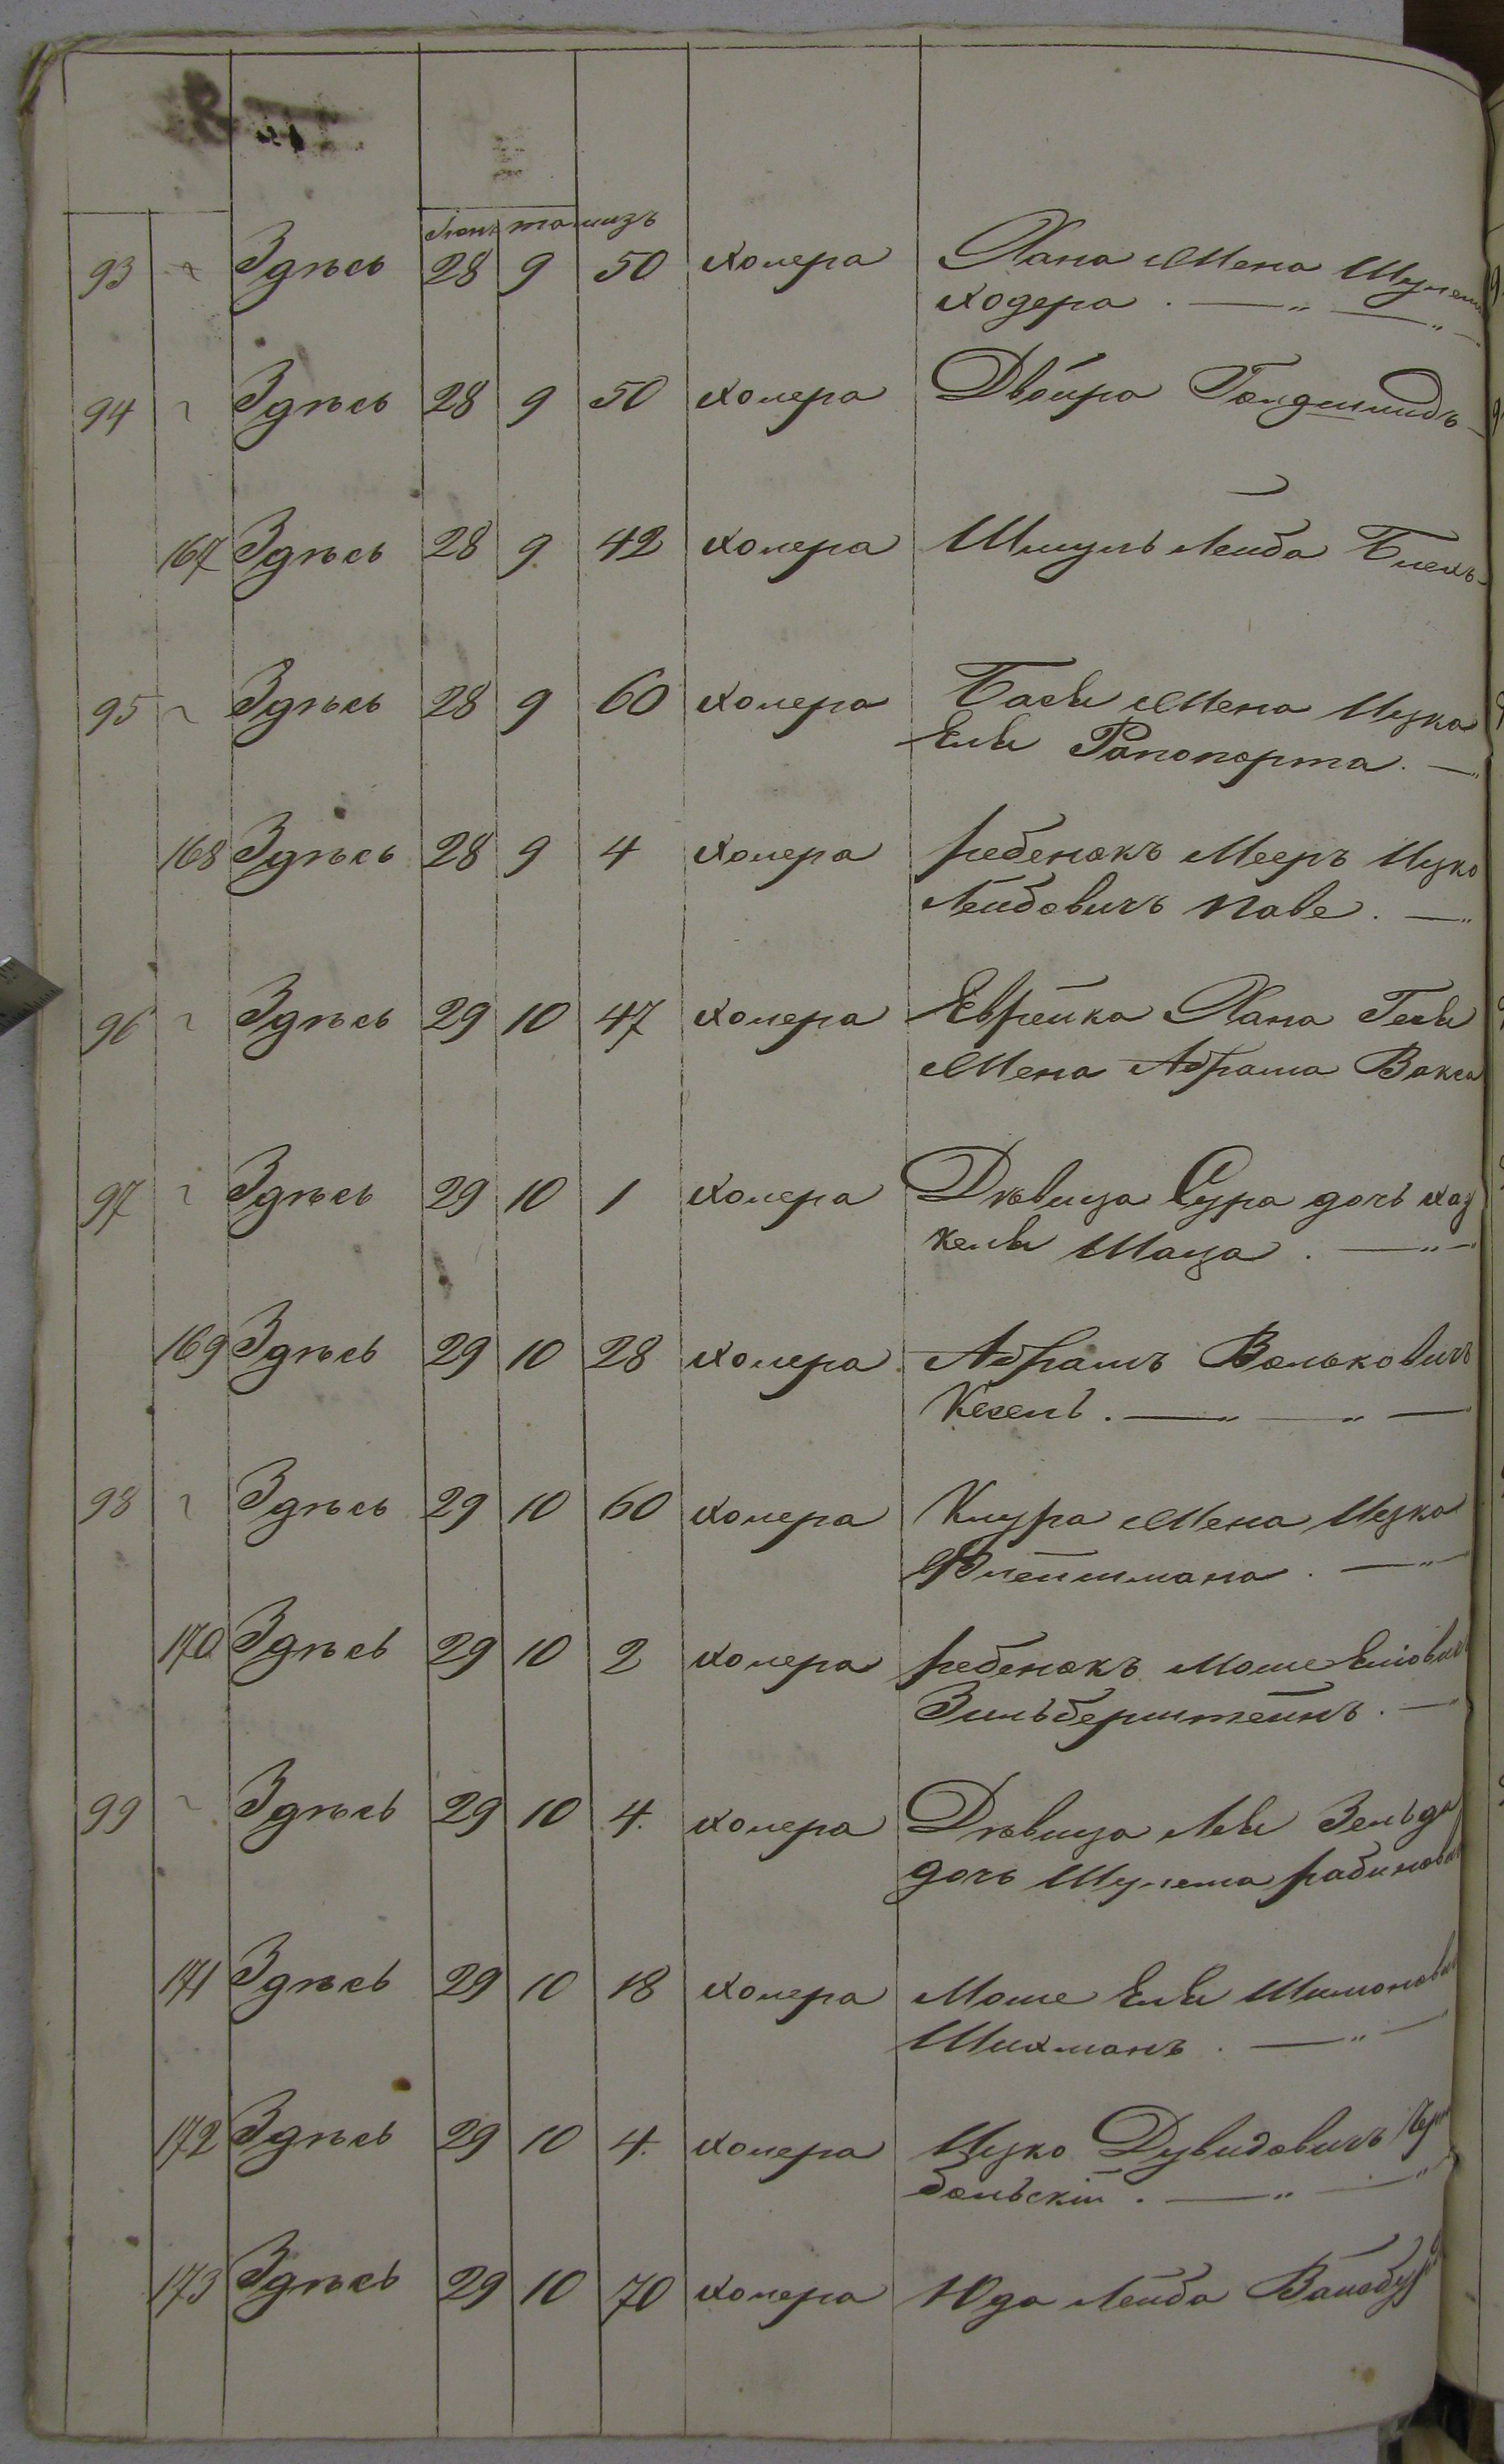 Іюнь тамизъ
93 Здѣсь 28 9 50 холера Хана Жена Шулема
Ходера . — " — "
94 Здѣсь 28 9 50 холера Двойра Голдшмидъ
167 Здѣсь 28 9 42 холера Шмуль Лейба Блехъ
95 Здѣсь 28 9 60 холера Бася Жена Ицка
Еля Рапопорта . —
168 Здѣсь 28 9 4 холера ребенокъ Мееръ Ицко
Лейбовичъ Паве . — "
96 Здѣсь 29 10 47 холера Еврейка Хана Геся
Жена Абрама Вакса
97 Здѣсь 29 10 1 холера Дѣвица Сура дочь хаз
келя Шаца . — " —
169 Здѣсь 29 10 28 холера Абрамъ Вольковичъ
Кесель . — " — " —
98 Здѣсь 29 10 60 холера Клура Жена Ицка
Флейшмана . — " —
170 Здѣсь 29 10 2 холера ребенокъ Моше Еліовичъ
Зильберштейнъ . —
99 Здѣсь 29 10 4. холера Дѣвица Лея Зельда
дочь Шулема рабинови
171 Здѣсь 29 10 18 холера Моше Еля Шимонови
Шихманъ . — " —
172 Здѣсь 29 10 4. холера Ицко Дувидовичъ Чер
больскій . — " — "
173 Здѣсь 29 10 70 холера Юда Лейба